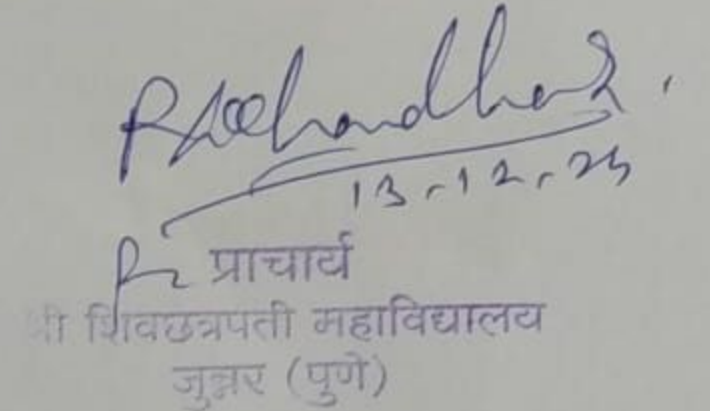 13-12-25
प्राचार्य
श्री शिवछत्रपती महाविद्यालय
जुन्नर (पुणे)